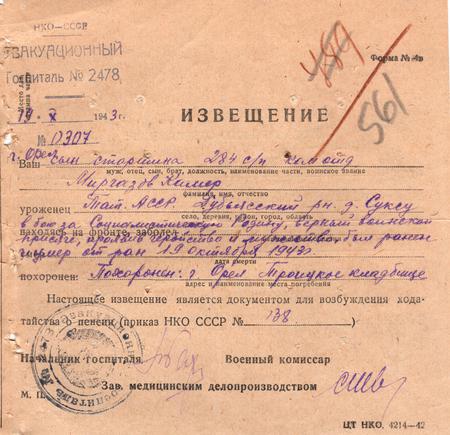 НКО—СССР
ЭВАКУАЦИОННЫЙ
Госпиталь № 2478
489
561
Форма № 4в
19 X 1943 г.
№ 0307
г. Орел
ИЗВЕЩЕНИЕ
Ваш сын старшина 284 с/п ком. отд
муж, отец, сын, брат, должность, наименование части, воинское звание
Миргазов
фамилия, имя, отчество
уроженец Тат. АССР. рн. д. Суксу
село, деревня, район, город, область
в бою за Социалистическую родину, верный воинской
находясь на фронте, заболел
присяге, проявив геройство и мужество, был ранен
умер от ран 19 октября 1943 г.
дата смерти
похоронен: Похоронен: г Орел Троицкое кладбище
адрес и наименование места погребения
Настоящее извещение является документом для возбуждения хода-
тайства о пенсии (приказ НКО СССР № 138 )
Начальник госпиталя
Военный комиссар
Зав. медицинским делопроизводством
М. П.
ЦТ НКО. 4214—42